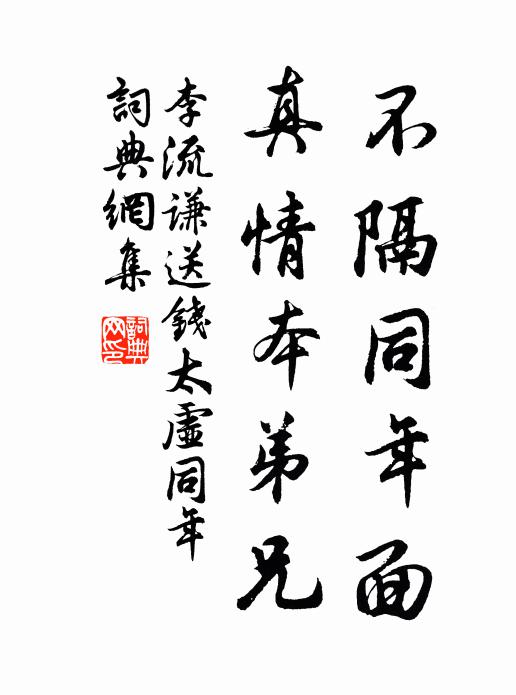 不隔同年面
真情本弟兄
李流谦送錢太虛同年
詞典網集
詞典網印